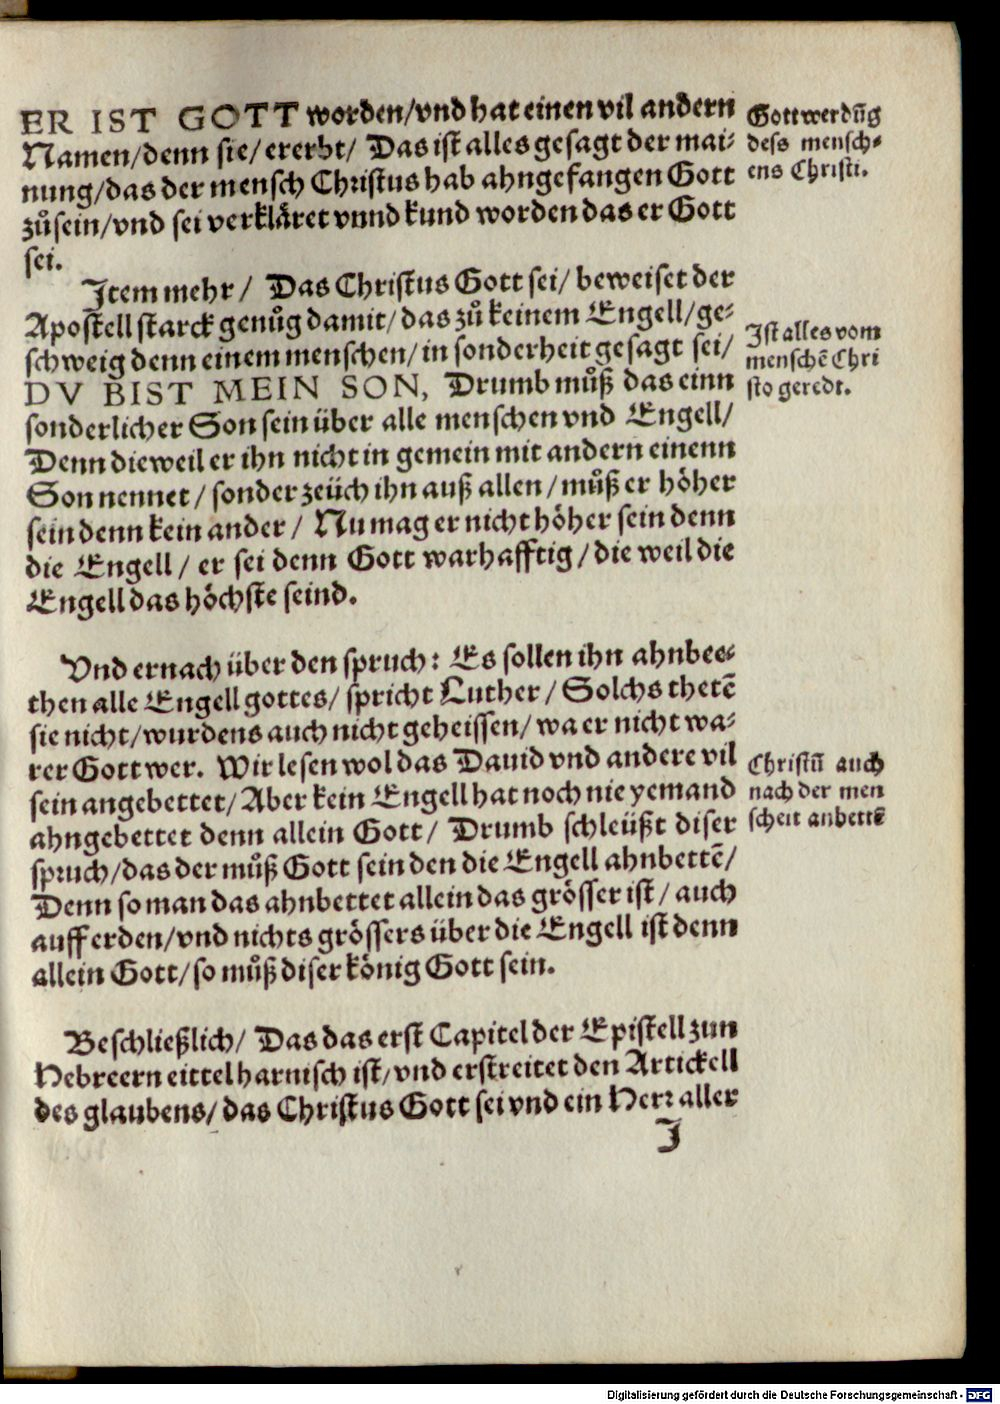 ER IST GOTT worden/vnd hat einen vil andern
Namen/denn sie/ ererbt/ Das ist alles gesagt der mai-
nung/das der mensch Christus hab ahngefangen Gott
zůsein/vnd sei verkläret vnnd kund worden das er Gott
sei.
Gottwerdūg
dess mensch-
ens Christi.
Item mehr/ Das Christus Gott sei/ beweiset der
Apostell starck genůg damit/das zů keinem Engell/ge-
schweig denn einem menschen/in sonderheit gesagt sei/
DV BIST MEIN SON, Drumb můß das einn
sonderlicher Son sein über alle menschen vnd Engell/
Denn dieweil er ihn nicht in gemein mit andern einenn
Son nennet/sonder zeüch ihn auß allen/můß er höher
sein denn kein ander/ Nu mag er nicht höher sein denn
die Engell/ er sei denn Gott warhafftig/die weil die
Engell das höchste seind.
Ist alles vom
menschē Chri
sto geredt.
Vnd ernach über den spruch: Es sollen ihn ahnbee-
then alle Engell gottes/ spricht Luther/ Solchs thetē
sie nicht/wurdens auch nicht geheissen/wa er nicht wa-
rer Gott wer. Wir lesen wol das Dauid vnd andere vil
sein angebettet/Aber kein Engell hat noch nie yemand
ahngebettet denn allein Gott/ Drumb schleüßt diser
spruch/das der můß Gott sein den die Engell ahnbettē/
Denn so man das ahnbettet allein das grösser ist/ auch
auff erden/vnd nichts grössers über die Engell ist denn
allein Gott/so můß diser könig Gott sein.
Christū auch
nach der men
scheit anbettē
Beschließlich/ Das das erst Capitel der Epistell zun
Hebreern eittel harnisch ist/vnd erstreitet den Artickell
des glaubens/das Christus Gott sei vnd ein Herr aller
J
Digitalisierung gefördert durch die Deutsche Forschungsgemeinschaft - DFG